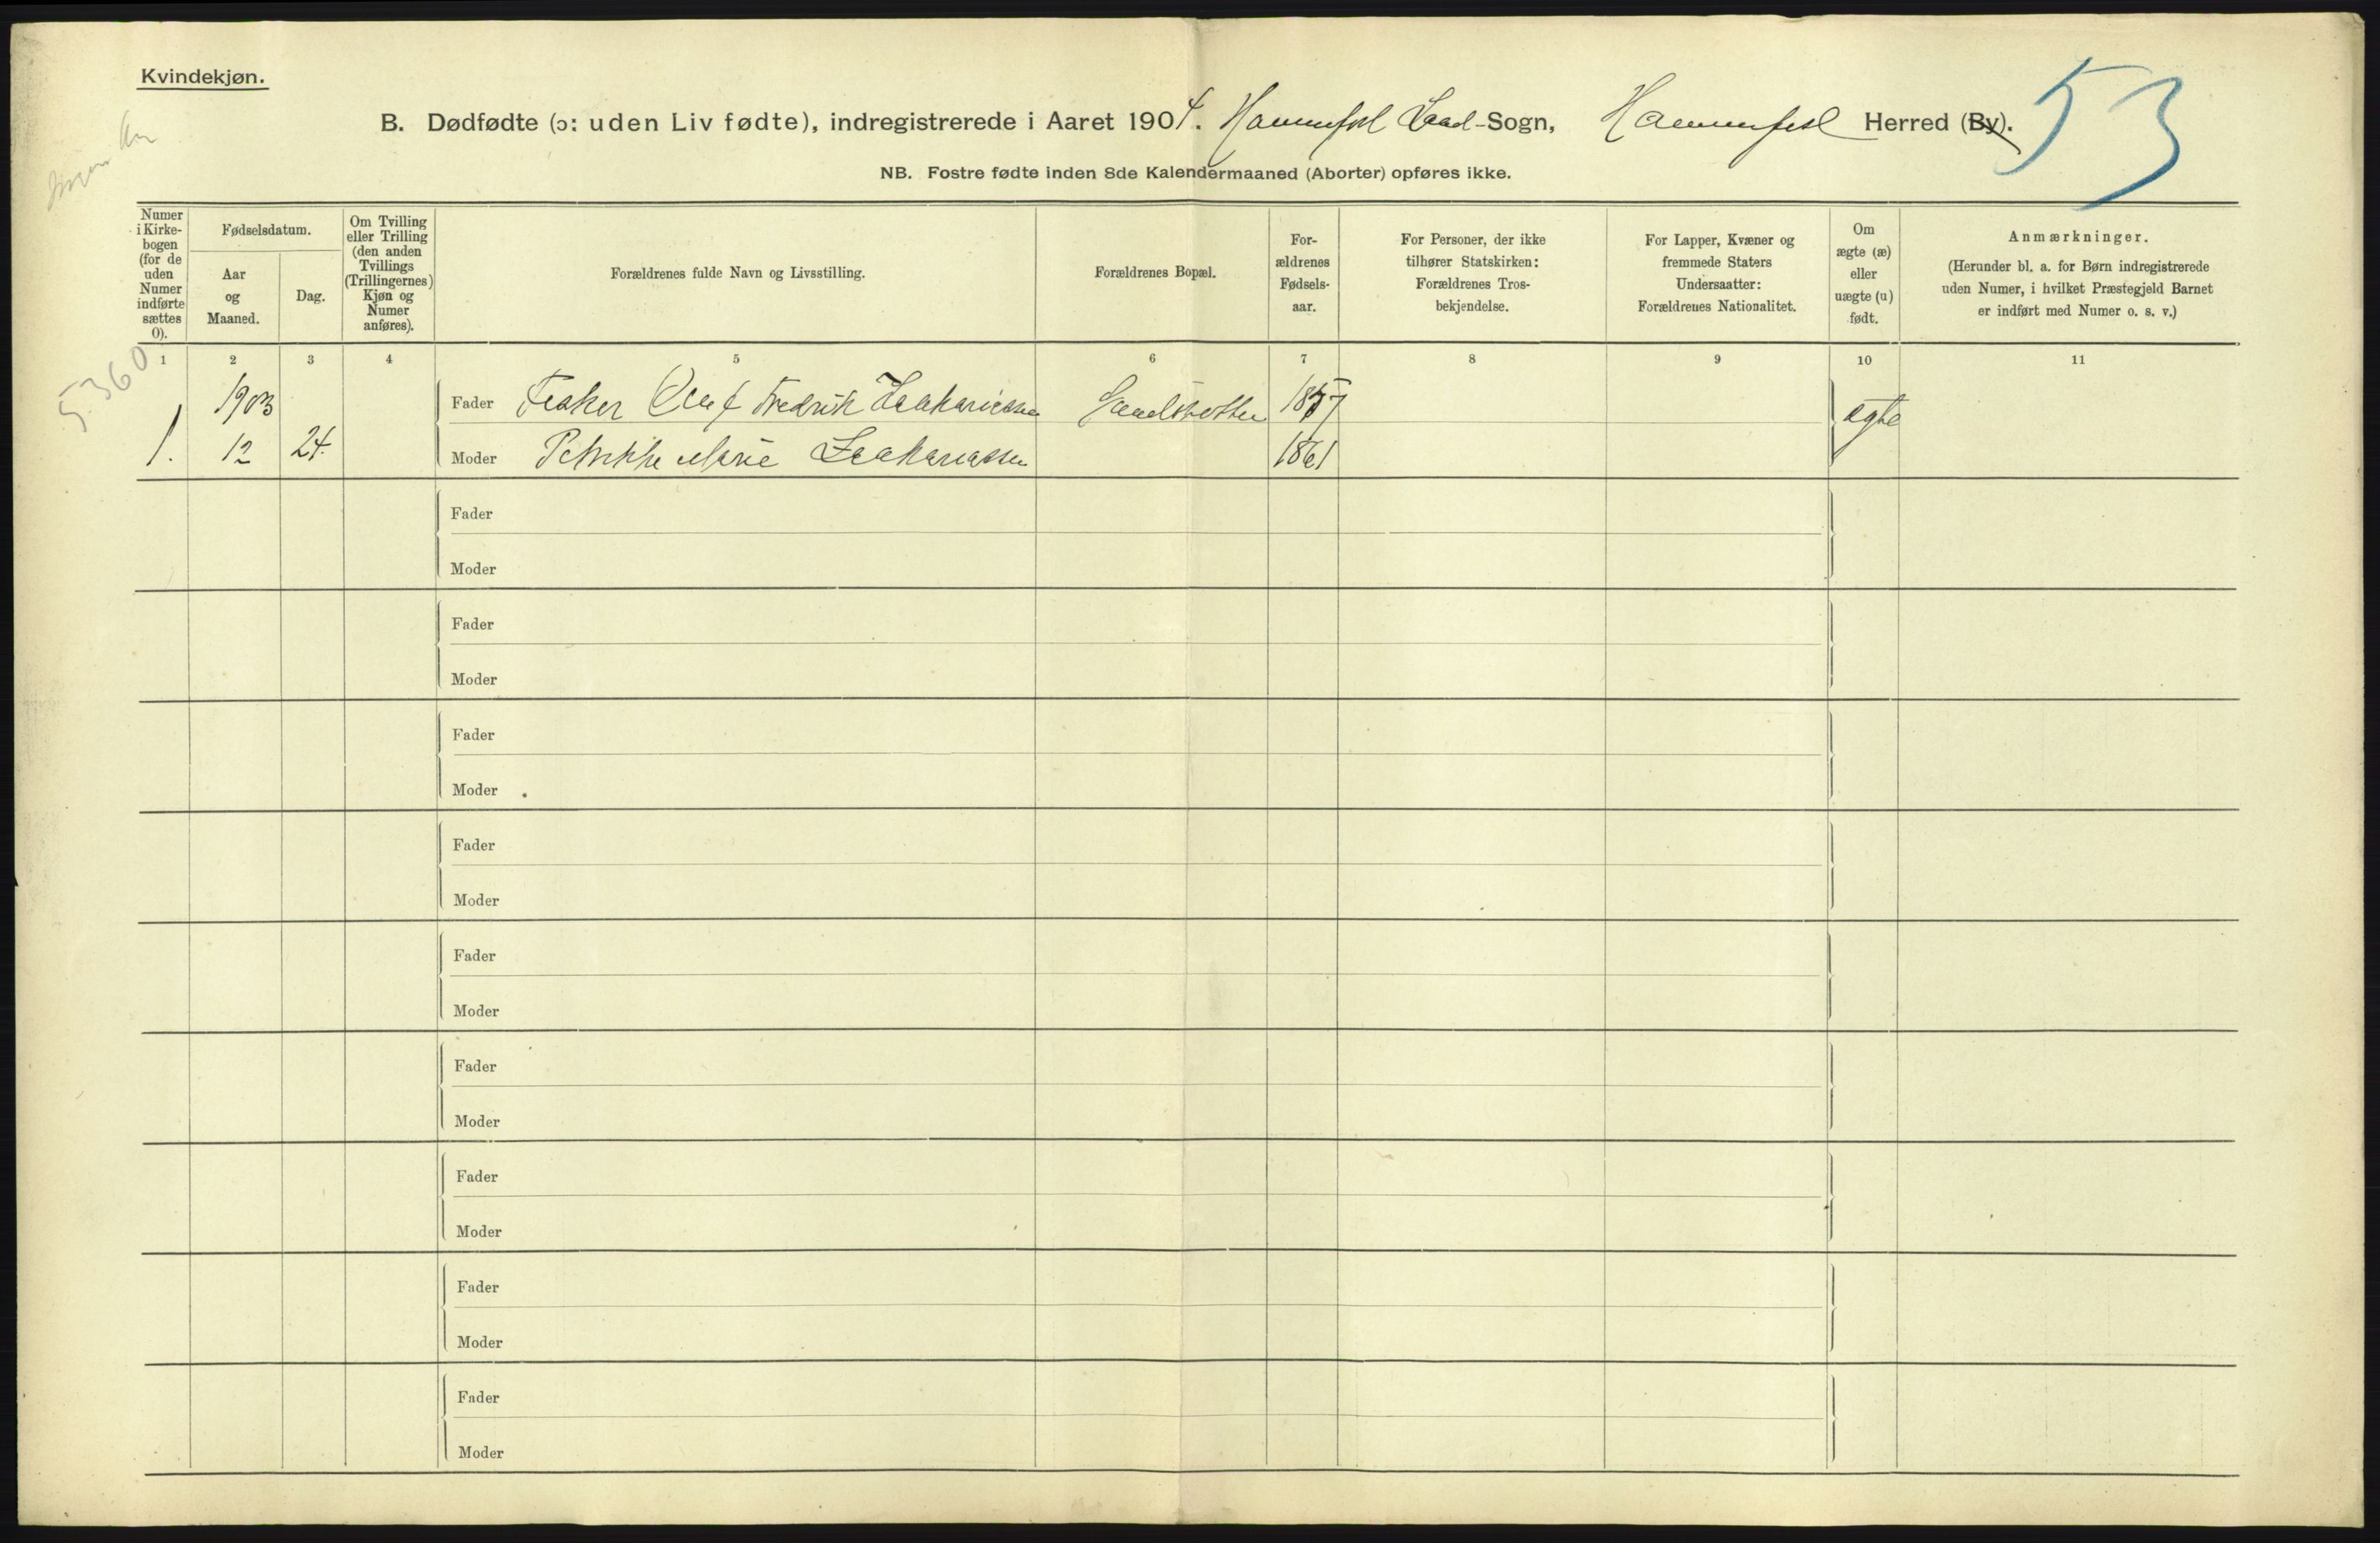 Kvindekjøn.
B. Dødfødte (ɔ: uden Liv fødte), indregistrerede i Aaret 1904. Hammerfest Land-Sogn, Hammerfest Herred (By).
53
NB. Fostre fødte inden 8de Kalendermaaned (Aborter) opføres ikke.
Numer
i Kirke-
bogen
(for de
uden
Numer
indførte
sættes
0).
Fødselsdatum.
Aar
og
Maaned.
Dag.
Om Tvilling
eller Trilling
(den anden
Tvillings
(Trillingernes)
Kjøn og
Numer
anføres).
Forældrenes fulde Navn og Livsstilling.
Forældrenes Bopæl.
For-
ældrenes
Fødsels-
aar.
For Personer, der ikke
tilhører Statskirken:
Forældrenes Tros-
bekjendelse.
For Lapper, Kvæner og
fremmede Staters
Undersaatter:
Forældrenes Nationalitet.
Om
ægte (æ)
eller
uægte (u)
født.
Anmærkninger.
(Herunder bl. a. for Børn indregistrerede
uden Numer, i hvilket Præstegjeld Barnet
er indført med Numer o. s. v.)
1 2 3 4 5 6 7 8 9 10 11
5360
1903
Fader Fisker Oluf Fredrik Zakariassen 1857 ægte
1. 12 24. Moder Petrikke Marie Zakariassen 1861
Fader
Moder
Fader
Moder
Fader
Moder
Fader
Moder
Fader
Moder
Fader
Moder
Fader
Moder
Fader
Moder
Fader
Moder